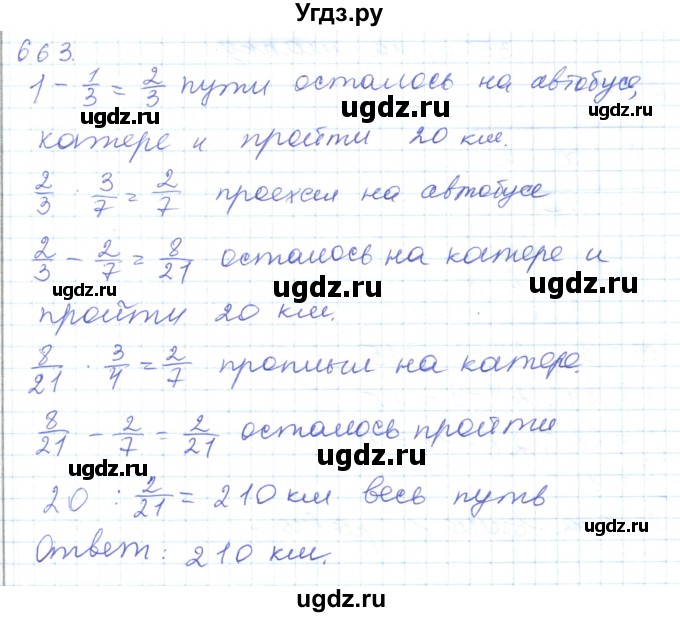 Угдз.ру
663.
1 - 1/3 = 2/3 пути осталось на автобусе,
ugdz.ru ugdz.ru ugdz.ru
катере и пройти 20 км.
2/3 · 3/7 = 2/7 проехал на автобусе
2/3 - 2/7 = 8/21 осталось на катере и
ugdz.ru ugdz.ru ugdz.ru
пройти 20 км.
8/21 · 3/4 = 2/7 проплыл на катере.
8/21 - 2/7 = 2/21 осталось пройти
ugdz.ru ugdz.ru ugdz.ru
20 : 2/21 = 210 км весь путь
ugdz.ru
Ответ: 210 км.
ugdz.ru
ugdz.ru